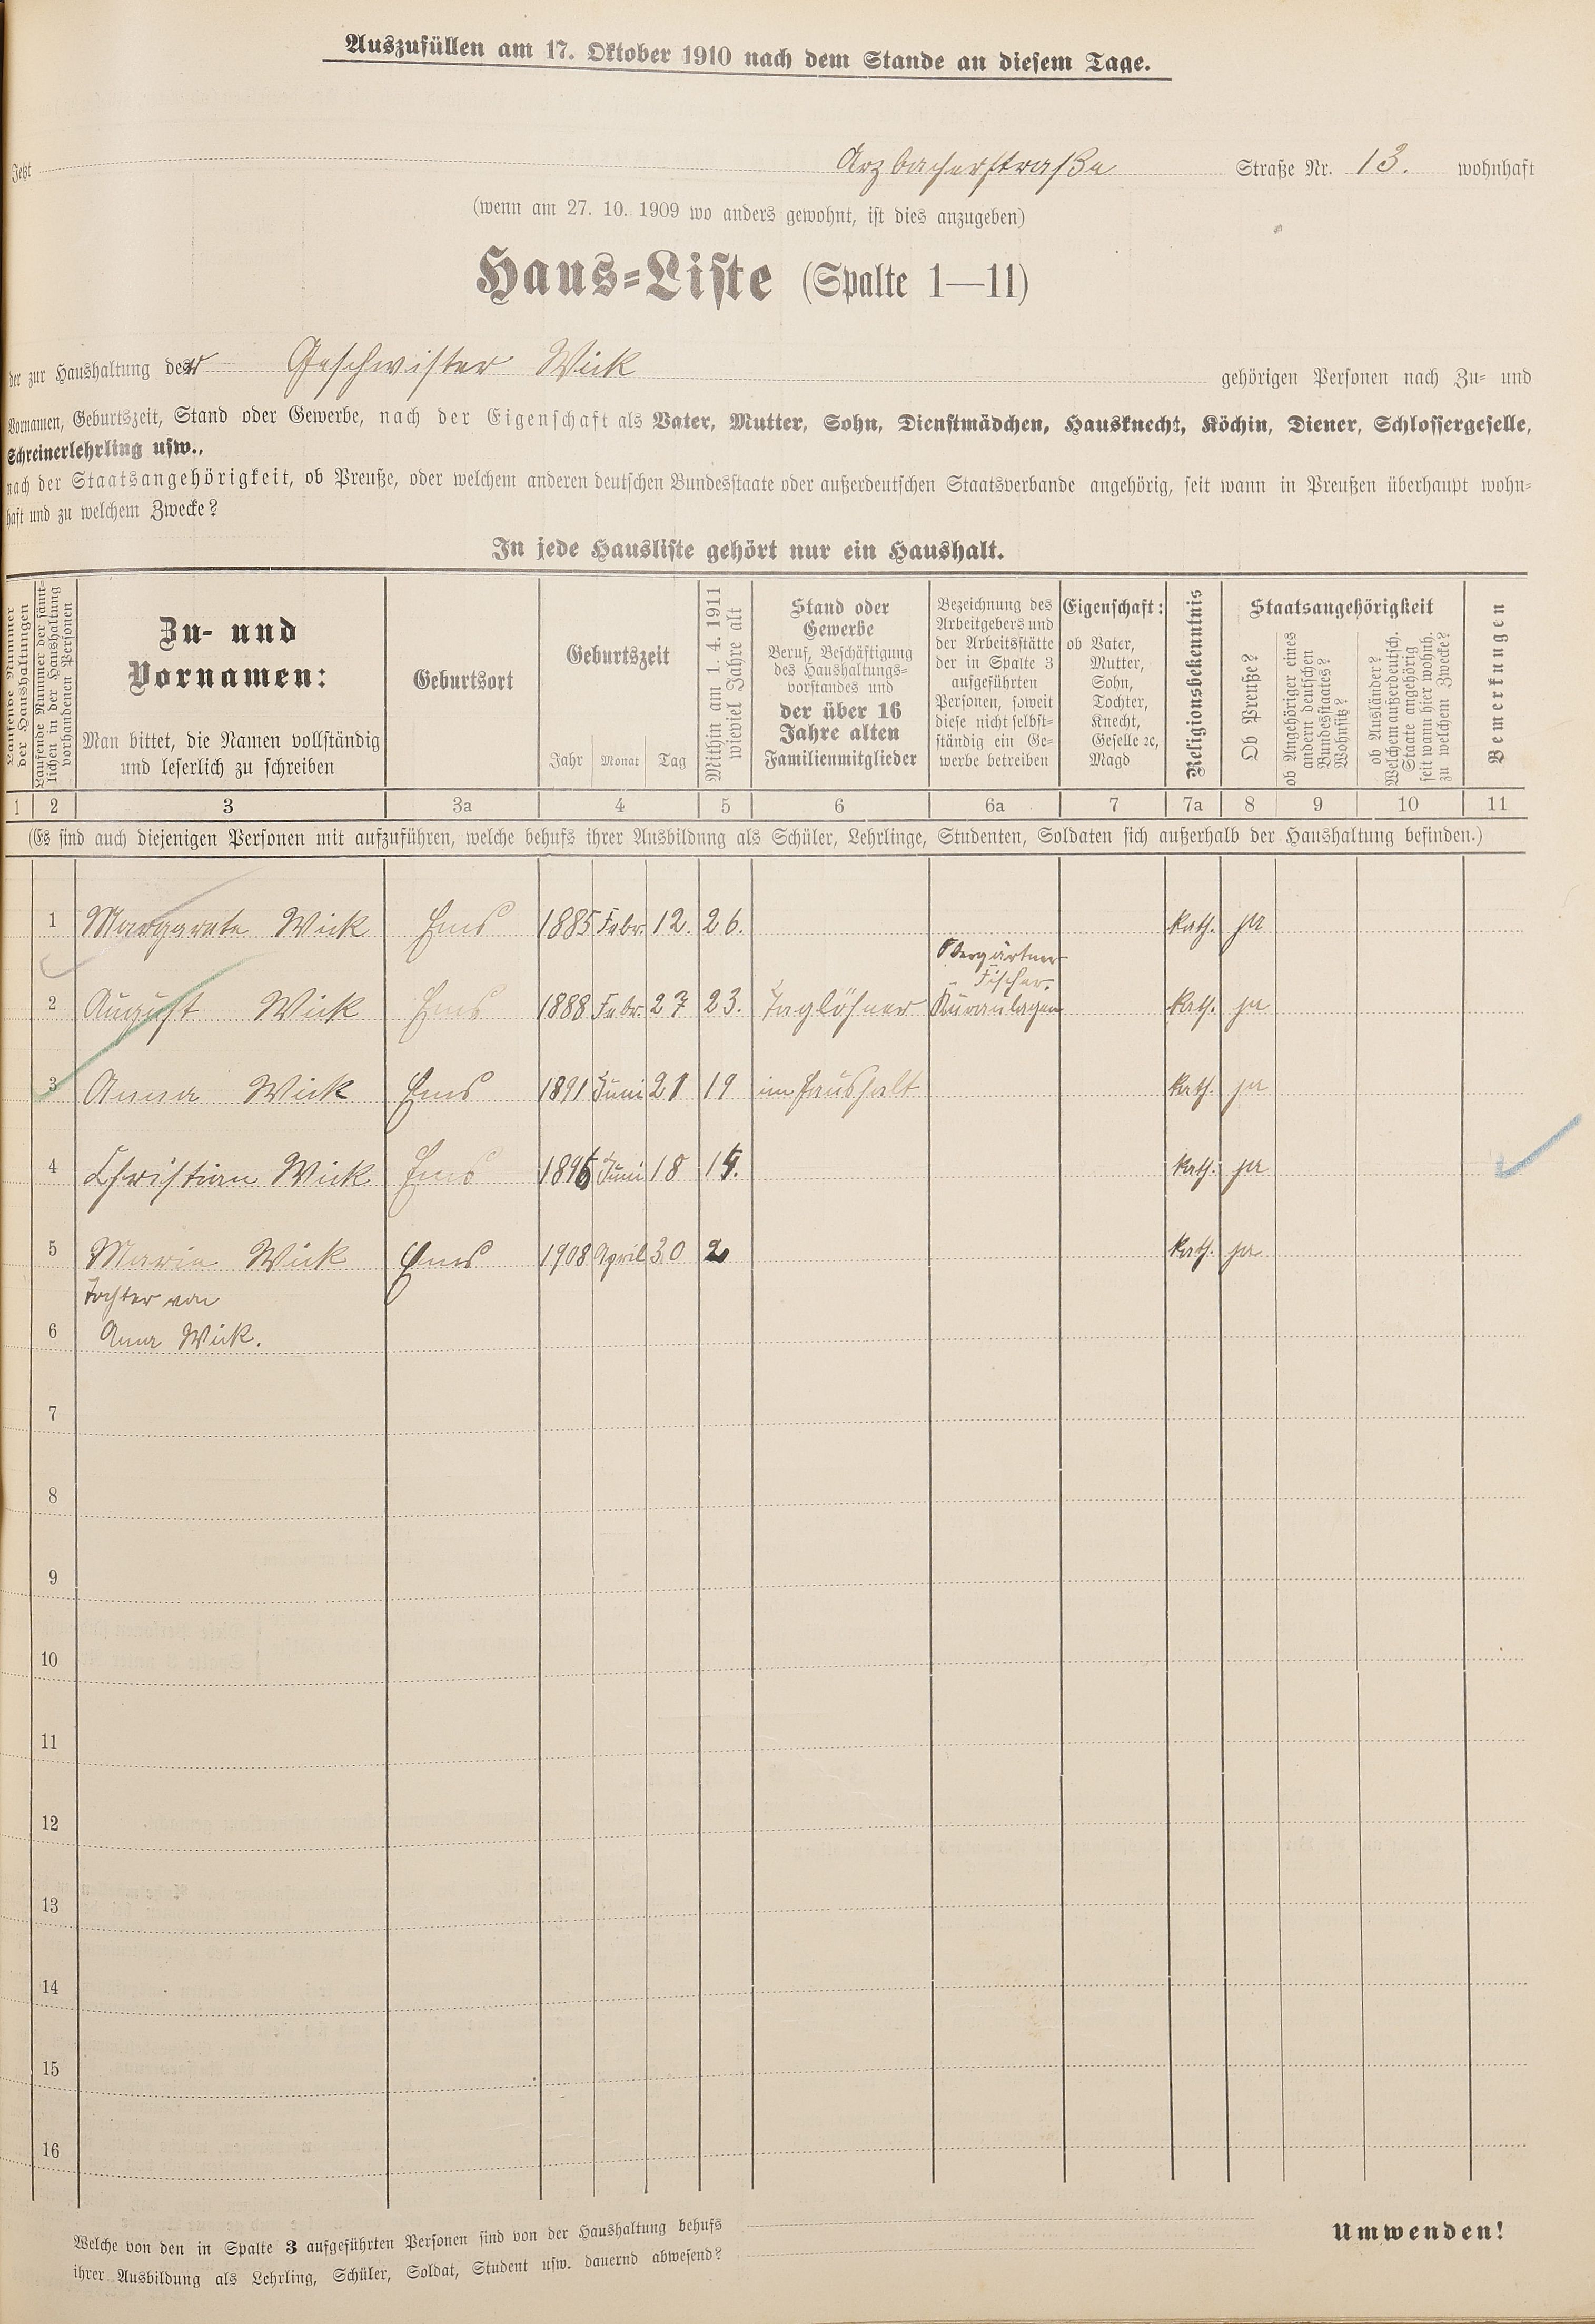 Auszufüllen am 17. Oktober 1910 nach dem Stande an diesem Tage.
Jetzt Arzbacherstraße Straße Nr. 13. wohnhaft
(wenn am 27. 10. 1909 wo anders gewohnt, ist dies anzugeben)
Haus-Liste (Spalte 1—11)
der zur Haushaltung der Geschwister Wick gehörigen Personen nach Zu- und
Vornamen, Geburtszeit, Stand oder Gewerbe, nach der Eigenschaft als Vater, Mutter, Sohn, Dienstmädchen, Hausknecht, Köchin, Diener, Schlossergeselle,
Schreinerlehrling usw.,
nach der Staatsangehörigkeit, ob Preuße, oder welchem anderen deutschen Bundesstaate oder außerdeutschen Staatsverbande angehörig, seit wann in Preußen überhaupt wohn-
haft und zu welchem Zwecke?
In jede Hausliste gehört nur ein Haushalt.
Laufende Nummer
der Haushaltungen
Laufende Nummer der sämt-
lichen in der Haushaltung
vorhandenen Personen
Zu- und
Vornamen:
Man bittet, die Namen vollständig
und leserlich zu schreiben
Geburtsort
Geburtszeit
Jahr Monat Tag
Mithin am 1. 4. 1911
wieviel Jahre alt
Stand oder
Gewerbe
Beruf, Beschäftigung
des Haushaltungs-
vorstandes und
der über 16
Jahre alten
Familienmitglieder
Bezeichnung des
Arbeitgebers und
der Arbeitsstätte
der in Spalte 3
aufgeführten
Personen, soweit
diese nicht selbst-
ständig ein Ge-
werbe betreiben
Eigenschaft:
ob Vater,
Mutter,
Sohn,
Tochter,
Knecht,
Geselle ꝛc,
Magd
Religionsbekenntnis
Staatsangehörigkeit
Ob Preuße?
ob Angehöriger eines
andern deutschen
Bundesstaates?
Wohnsitz?
ob Ausländer?
Welchem außerdeutsch.
Staate angehörig
seit wann hier wohnh.
zu welchem Zwecke?
Bemerkungen
1 2 3 3a 4 5 6 6a 7 7a 8 9 10 11
(Es sind auch diejenigen Personen mit aufzuführen, welche behufs ihrer Ausbildung als Schüler, Lehrlinge, Studenten, Soldaten sich außerhalb der Haushaltung befinden.)
1 Margarete Wick Ems 1885 Febr. 12. 26. kath. ja
Obergärtner
Fischer.
2 August Wick Ems 1888 Febr. 27 23. Taglöhner Kuranlagen kath. ja
3 Anna Wick Ems 1891 Juni 21 19 im Haushalt kath. ja
4 Christian Wick Ems 1896 Juni 18 14. kath. ja
5 Maria Wick Ems 1908 April 30 2 kath. ja
Tochter von
6 Anna Wick.
7
8
9
10
11
12
13
14
15
16
Welche von den in Spalte 3 aufgeführten Personen sind von der Haushaltung behufs
ihrer Ausbildung als Lehrling, Schüler, Soldat, Student usw. dauernd abwesend?
Umwenden!